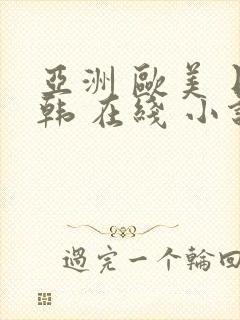 亞洲 歐美
韩 在綫 小
過完一个輪回